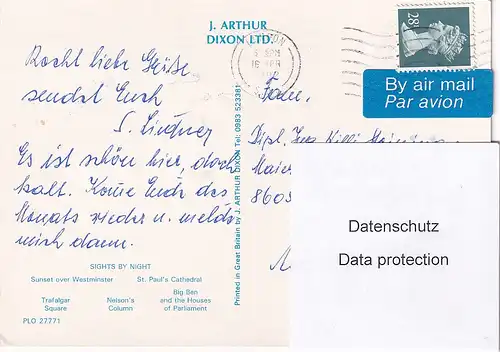 J. ARTHUR
DIXON LTD.
LONDON
28
By air mail
Par avion
Recht liebe Grüße
sendet Euch
S. Lindner
Es ist schön hier, doch
kalt. Komme Ende des
Monats wieder u. melde
mich dann.
Fam.
Dipl. Ing. Willi
Maier
8605
Datenschutz
Data protection
Printed in Great Britain by J. ARTHUR DIXON Tel: 0983 523381
SIGHTS BY NIGHT
Sunset over Westminster St. Paul's Cathedral
Trafalgar Square
Nelson's Column
Big Ben and the Houses of Parliament
PLO 27771